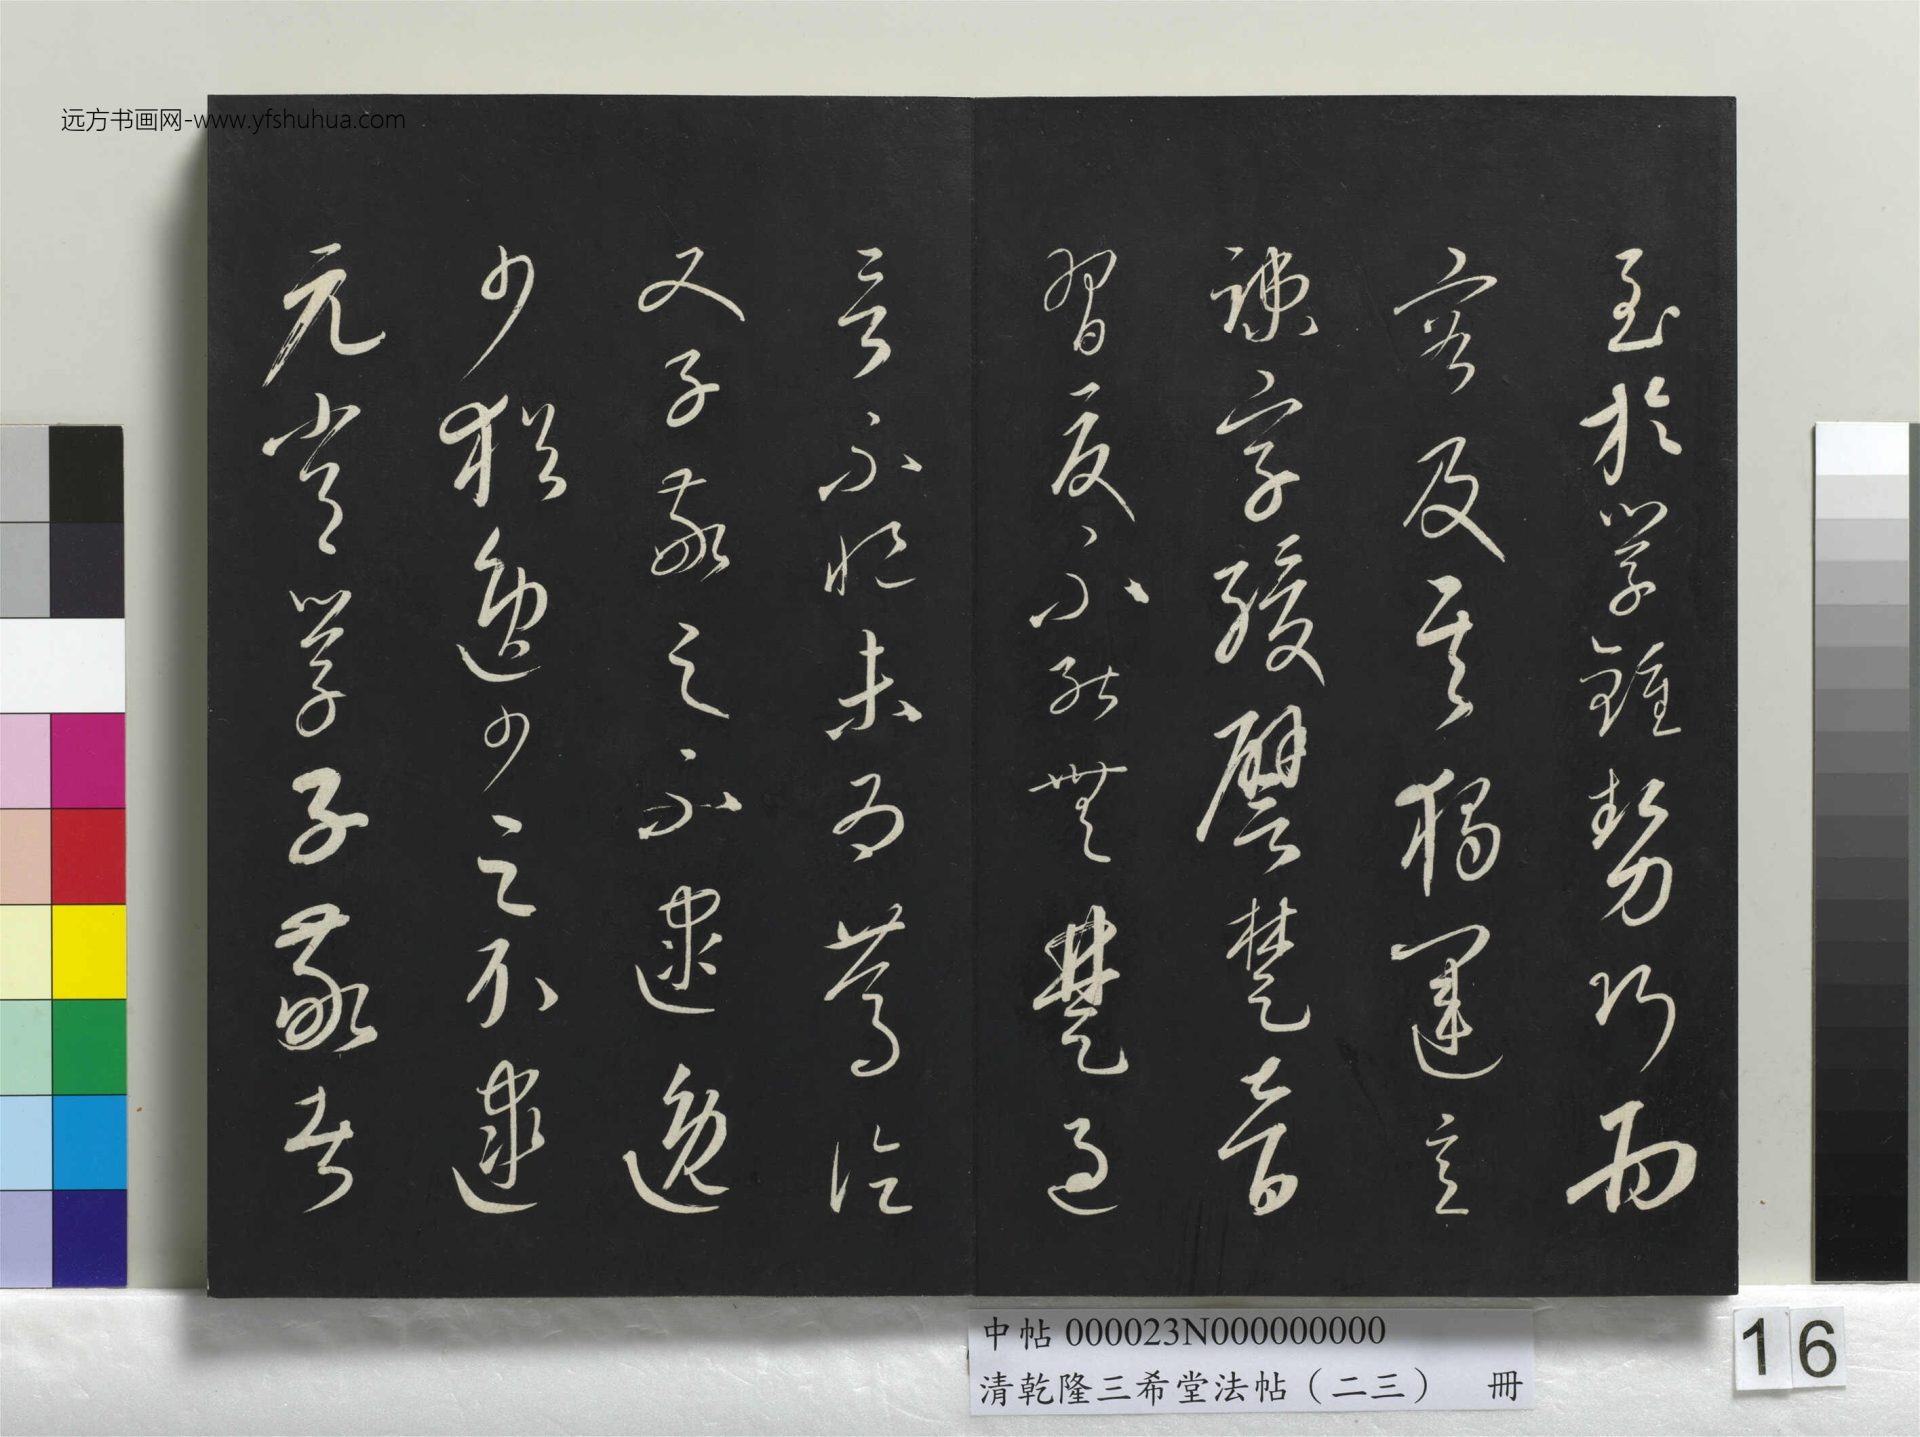 远方书画网-www.yfshuhua.com
至於學鍾勢巧而
密及其獨運意
疎字緩譬楚音
習夏不能無楚過
言不悒未為篤論
又子敬之不逮逸
少猶逸少之不逮
元常學子敬者
中帖 000023N000000000
清乾隆三希堂法帖（二三） 冊
16